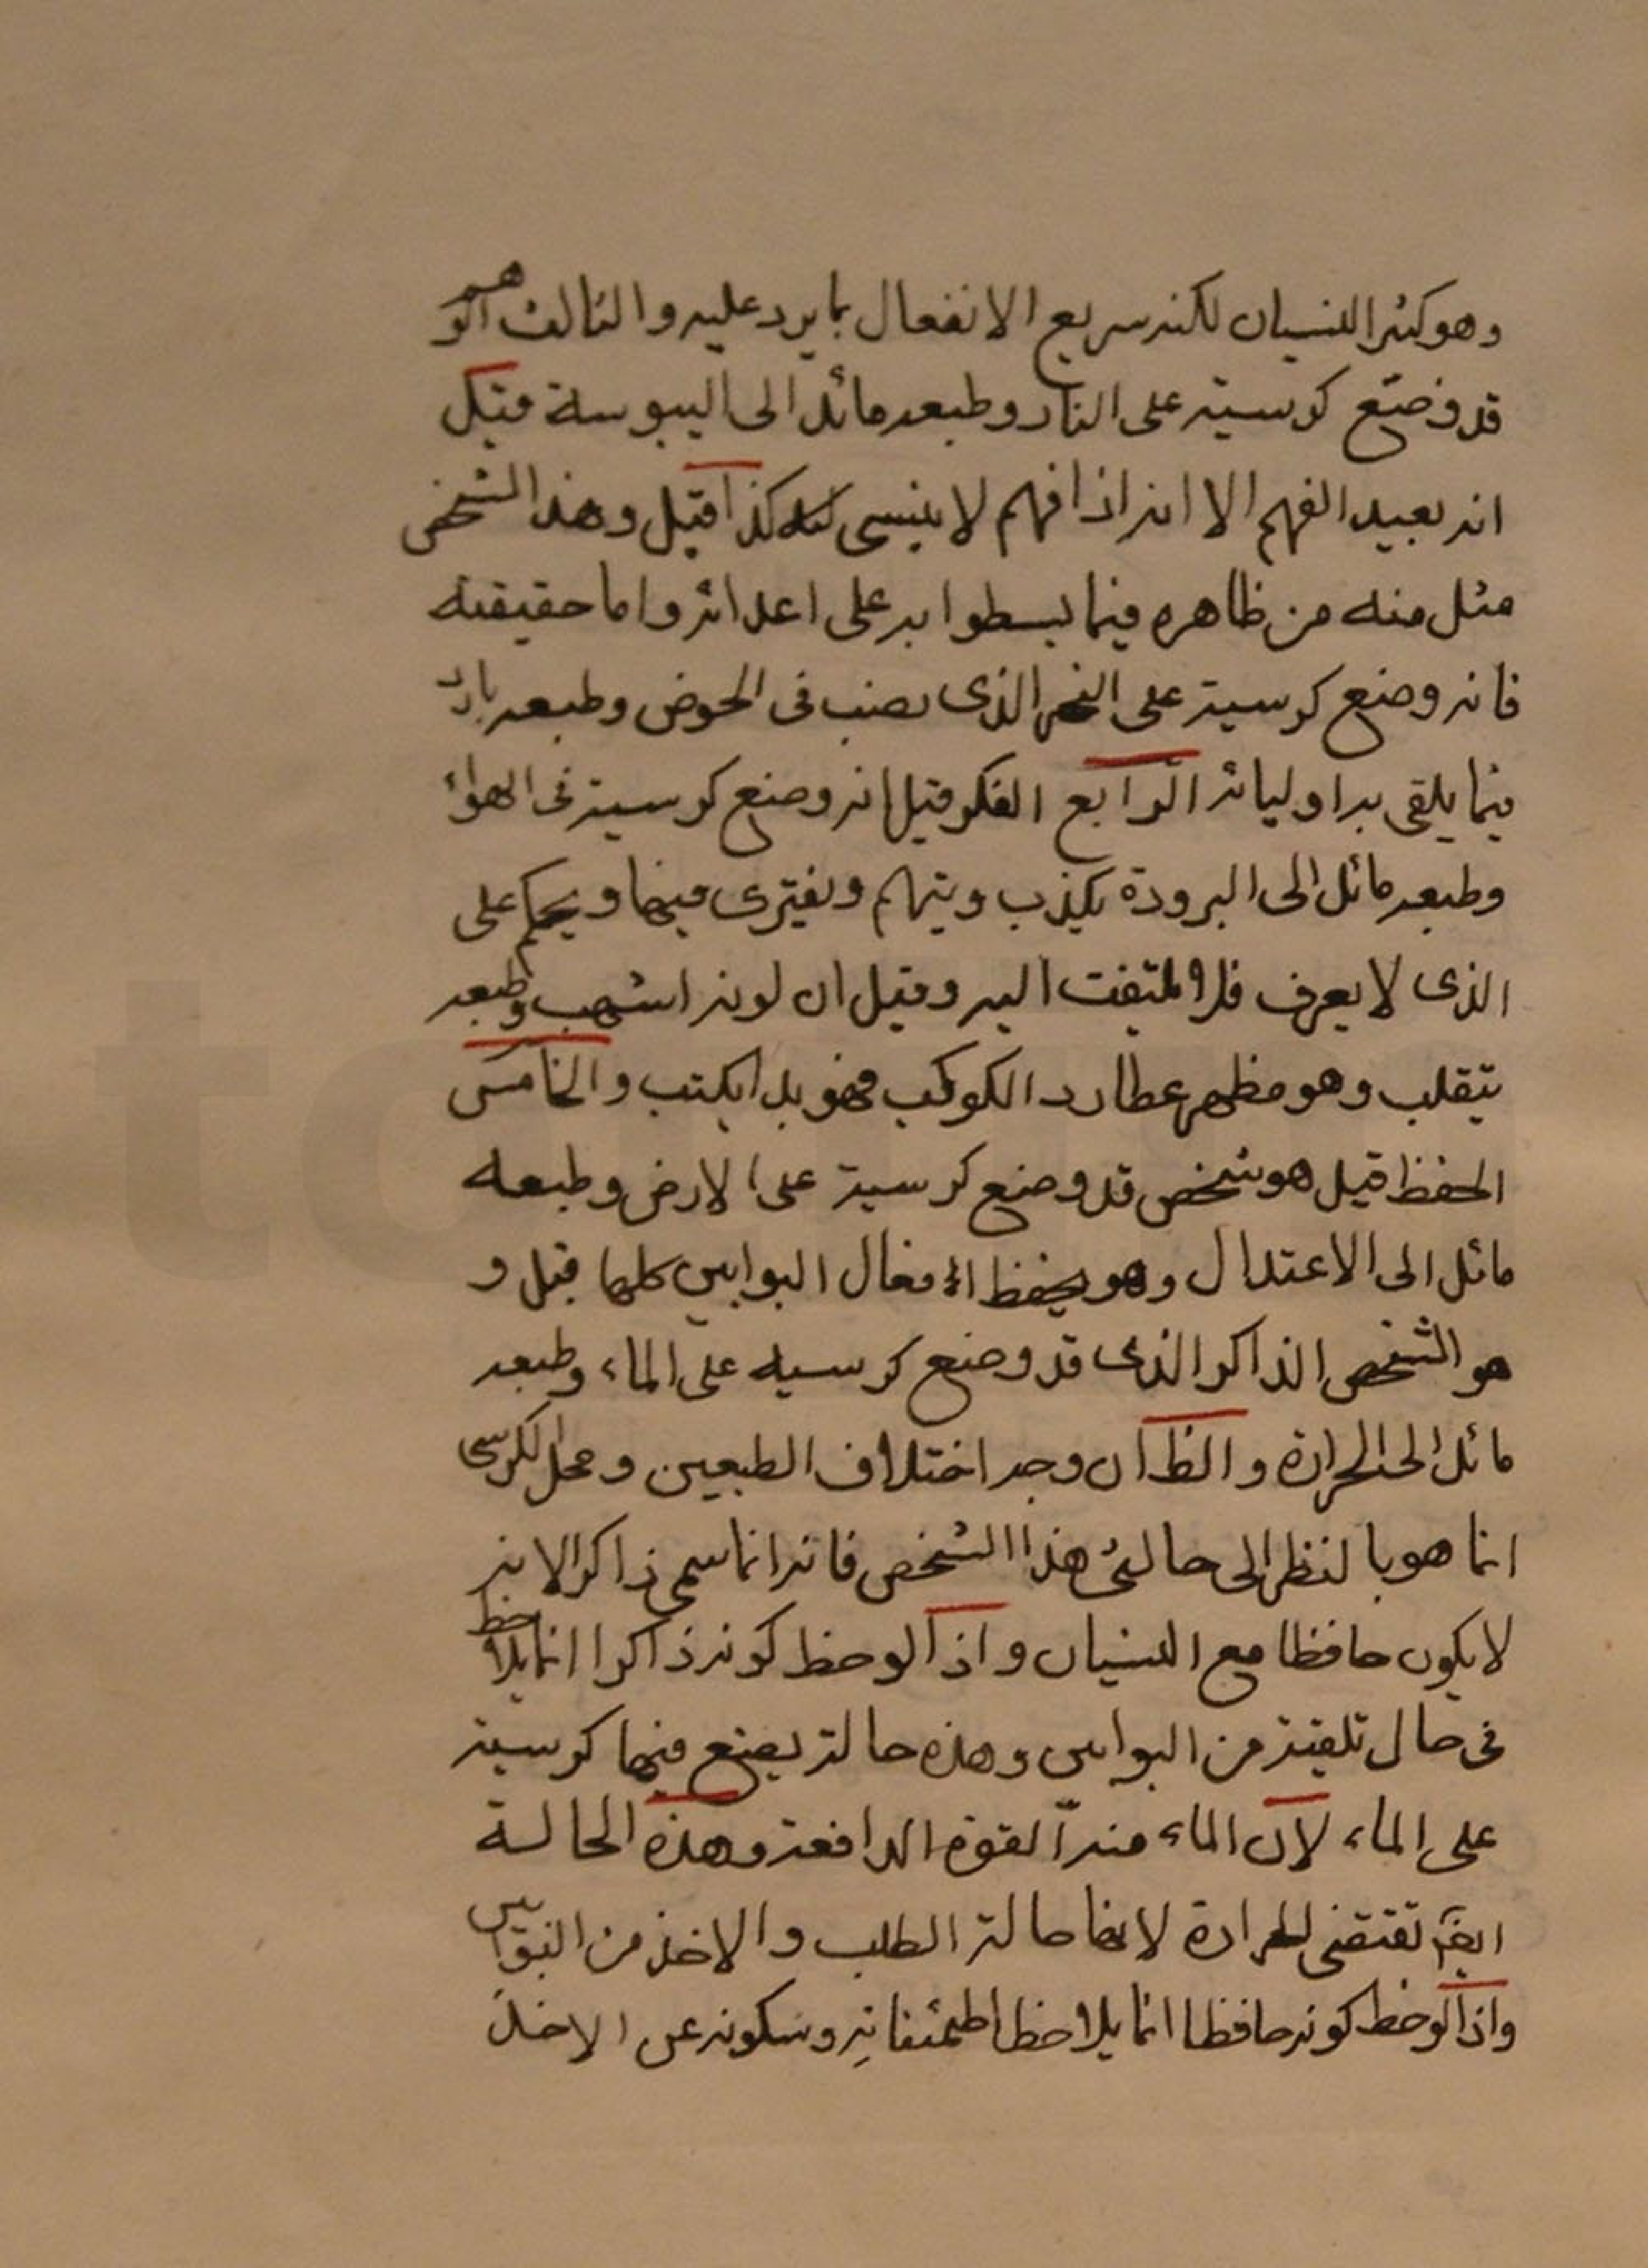 وهو كثير النسيان لكنه سريع الانفعال بما يرد عليه والثالث الوهم
قد وضع كرسيه على النار وطبعه مائل الى اليبوسة قيل
انه بعيد الفهم الا انه اذا فهم لا ينسى كذا قيل وهذا الشخص
مثل منه من ظاهره فيما يسطوا به على اعدائه واما حقيقته
فانه وضع كرسيه على الذى يصب فى الحوض وطبعه بارد
فيما يلقى به اوليائه الرابع الفكر قيل انه وضع كرسيه فى الهواء
وطبعه مائل الى البرودة يكذب ويتهم ويفترى فيهما ويحكم على
الذى لا يعرف فلا يلتفت اليه وقيل ان لونه اشهب وطبعه
يتقلب وهو مظهر عطارد الكوكب فهو بدا يكتب والخامس
الحفظ قيل هو شخص قد وضع كرسيه على الارض وطبعه
مائل الى الاعتدال وهو يحفظ افعال البوابين كلها قيل و
هو الشخص الذاكر الذى قد وضع كرسيه على الماء وطبعه
مائل الى الحرارة والظ ان وجه اختلاف الطبعين ومحل الكرسى
انما هو بالنظر الى حالتى هذا الشخص فانه انما سمى ذاكرا لانه
لا يكون حافظا مع النسيان واذا لوحظ كونه ذاكرا انما يلاحظ
فى حال تلقيه من البوابين وهذه حالة يضع فيها كرسيه
على الماء لان الماء منه القوة الدافعة وهذه الحالة
ايضا تقتضى الحرارة لانها حالة الطلب والاخذ من البوابين
واذا لوحظ كونه حافظا انما يلاحظ اطمئنانه وسكونه عن الاخذ